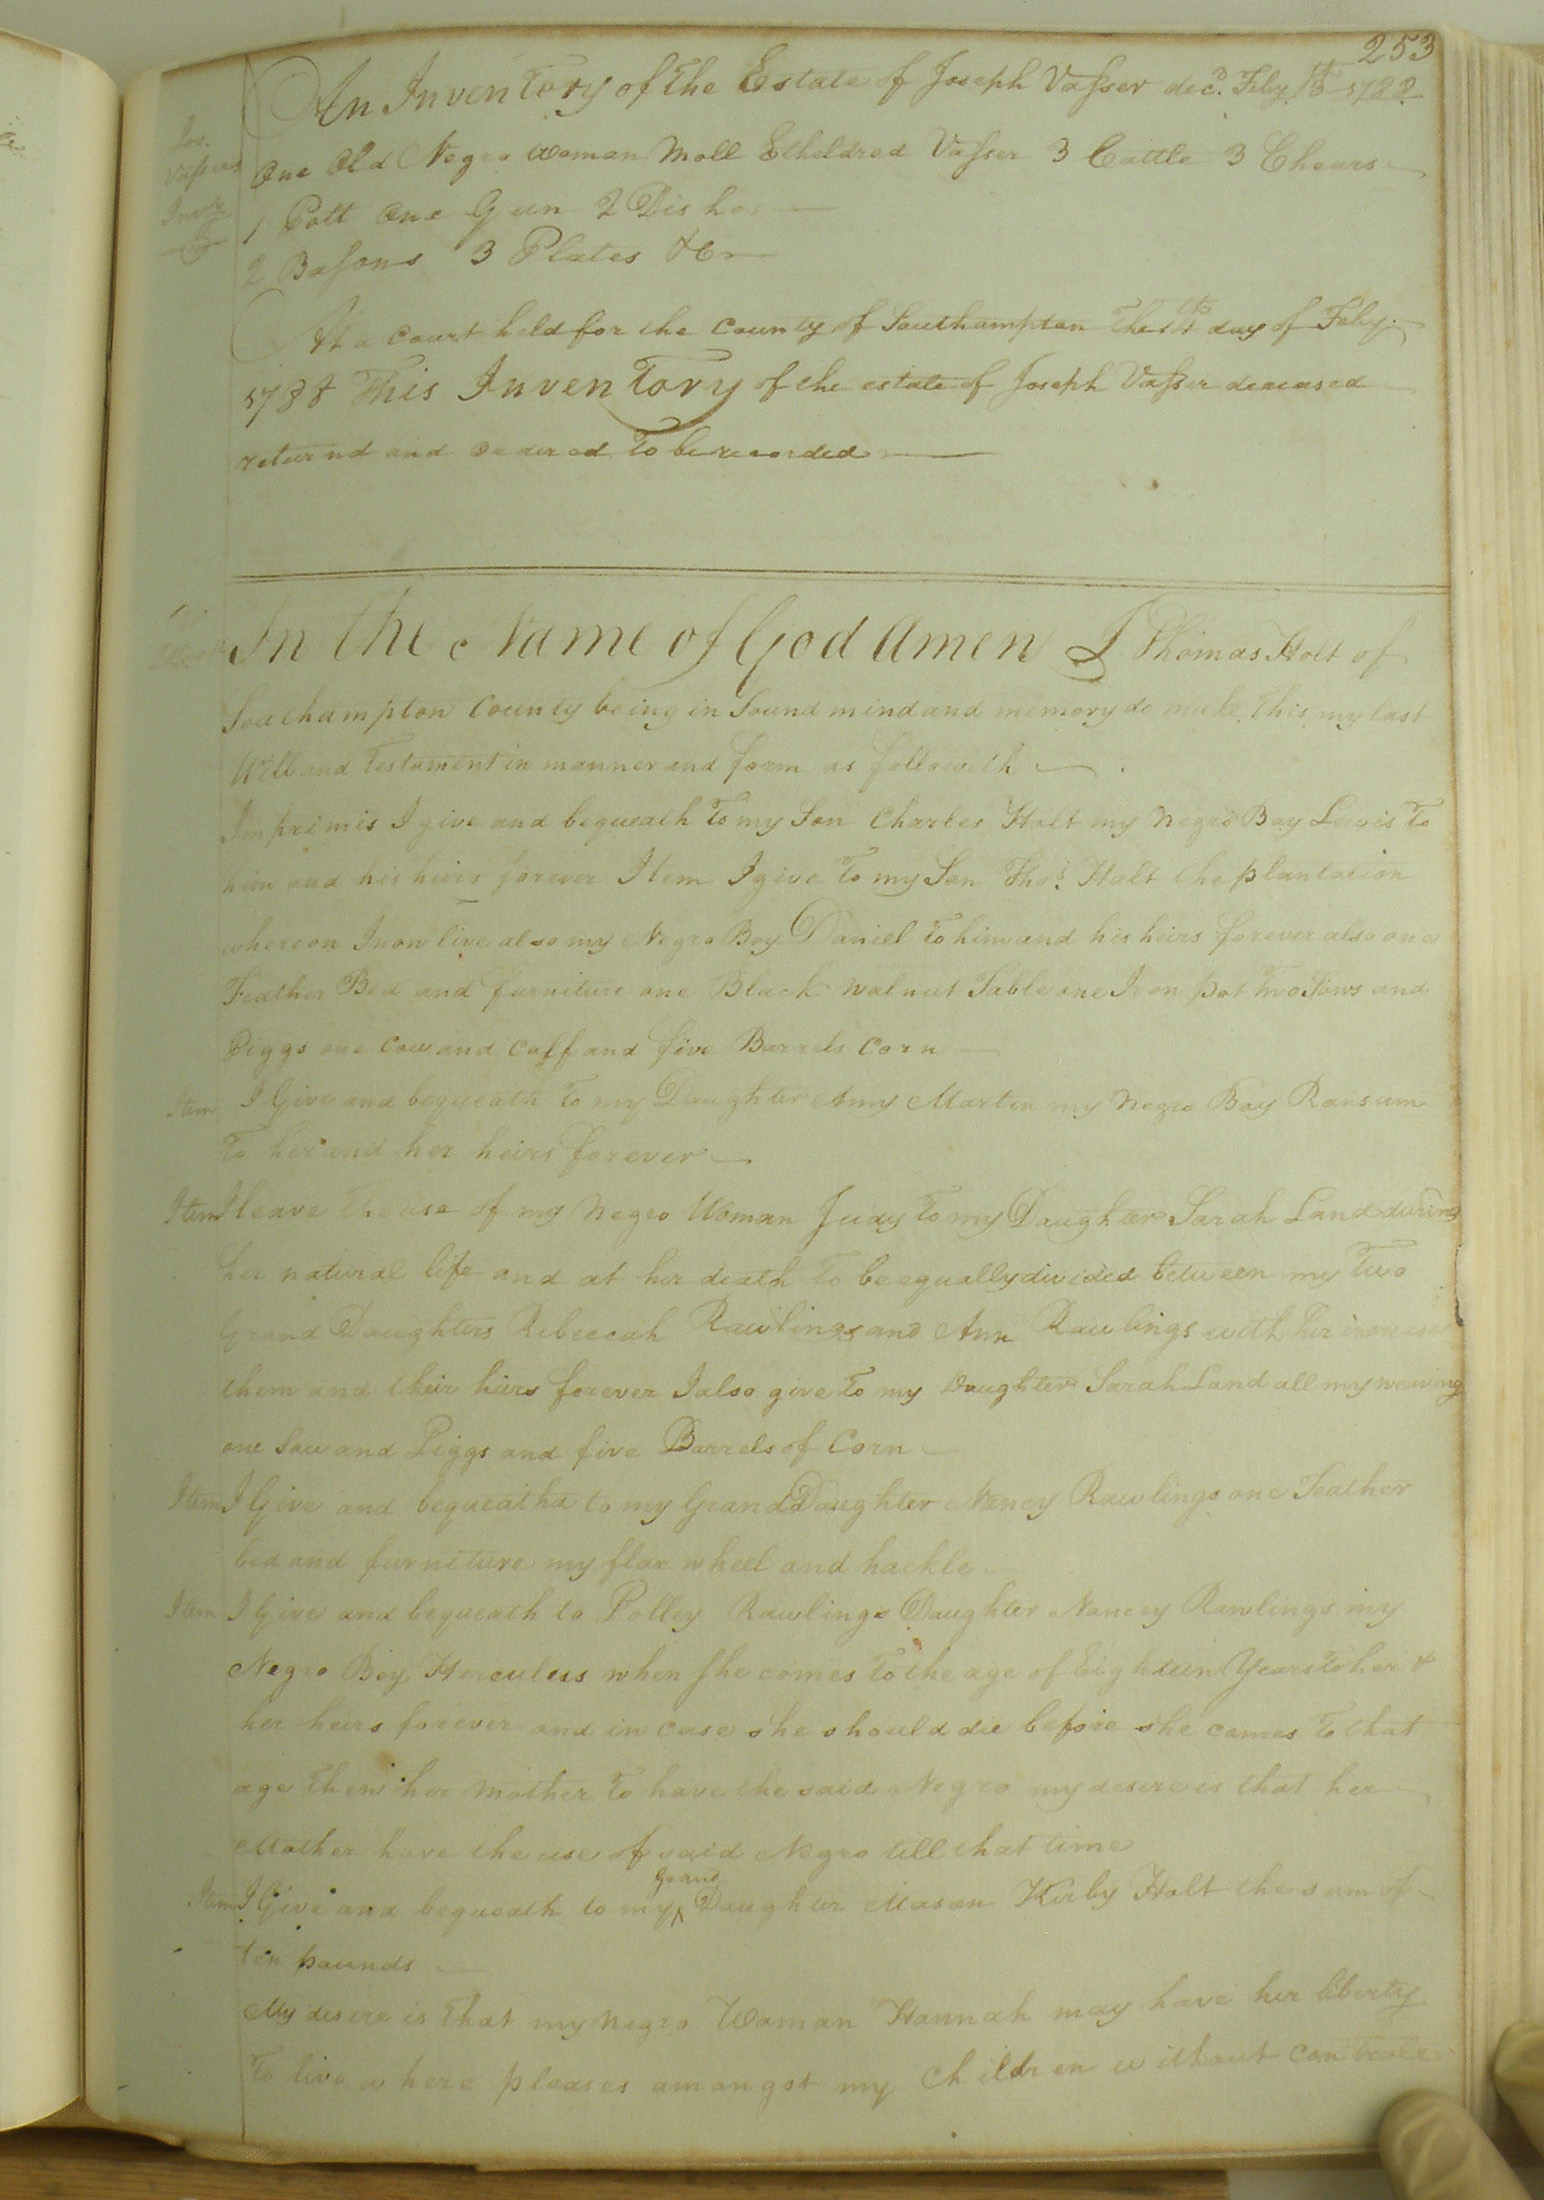 253
An Inventory of the Estate of Joseph Vasser decd. Feby 1788
Jos.
Vassers
Invy
One Old Negro woman Moll Etheldred Vasser 3 Cattle 3 Chears
1 Pott One Gun 2 Dishes
2 Basons 3 Plates &c
At a Court held for the County of Southampton the day of Feby
1788 This Inventory of the estate of Joseph Vasser deceased
returnd and ordered To be recorded
In the Name of God Amen I Thomas Holt of
Southampton County being in Sound mind and memory do make this my last
Will and Testament in manner and form as followeth
Imprimis I give and bequeath To my Son Charles Holt my Negro Boy Lewis To
him and his heirs forever Item I give To my Son Thos. Holt the plantation
whereon I now live also my Negro Boy Daniel To him and his heirs forever also one
Feather Bed and furniture one Black walnut Table one Iron pot Two Sows and
Piggs one Cow and Caff and five Barrels Corn
Item I Give and bequeath To my Daughter Amy Martin my Negro Boy Ransum
To her and her heirs forever
Item I leave the use of my Negro Woman Judy To my Daughter Sarah Land during
her natural life and at her death To be equally divided between my Two
Grand Daughters Rebeccah Rawlings and Ann Rawlings with her increase
them and their heirs forever I also give To my Daughter Sarah Land all my weaving
one Sow and Piggs and five Barrels of Corn
Item I Give and bequeatha to my Grand Daughter Nancy Rawlings one Feather
bed and furniture my flax wheel and hackle
Item I Give and bequeath to Polley Rawlings Daughter Nancey Rawlings my
Negro Boy Herculus when she comes To the age of Eighteen Years To her &
her heirs forever and in case she should die before she comes To that
age then her mother To have the said Negro my desire is that her
Mother have the use of said Negro till that time
Item I Give and bequeath to my Grand Daughter Mason Kirby Holt the sum of
ten pounds
My desire is that my Negro Woman Hannah may have her liberty
To live where pleases amongst my Children without controle